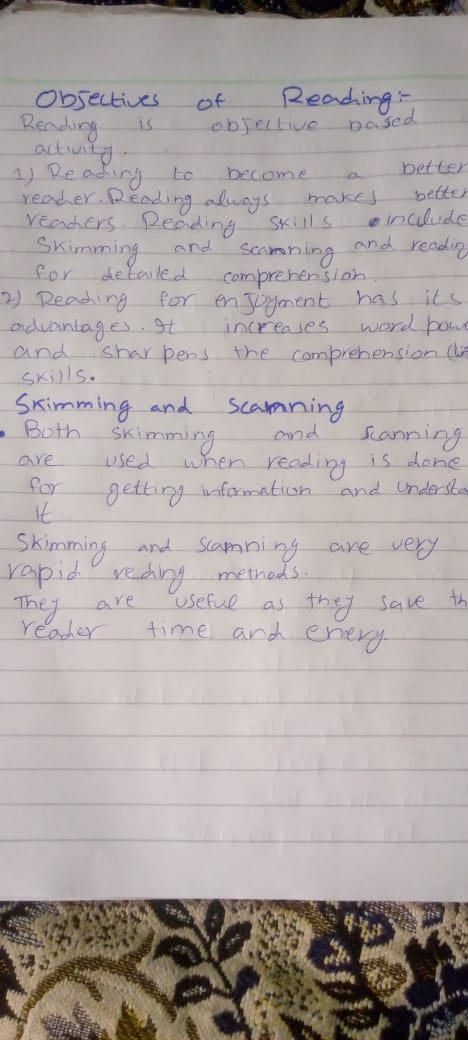 Objectives of Reading:-
Reading is objective based
activity.
1) Reading to become a better
reader. Reading always makes better
readers. Reading skills include
Skimming and scanning and reading
for detailed comprehension.
2) Reading for enjoyment has its
advantages. It increases word powe
and sharpens the comprehension
skills.
Skimming and scanning
• Both skimming and scanning
are used when reading is done
for getting information and understa
it
Skimming and scanning are very
rapid reding methods.
They are useful as they save th
reader time and enery.